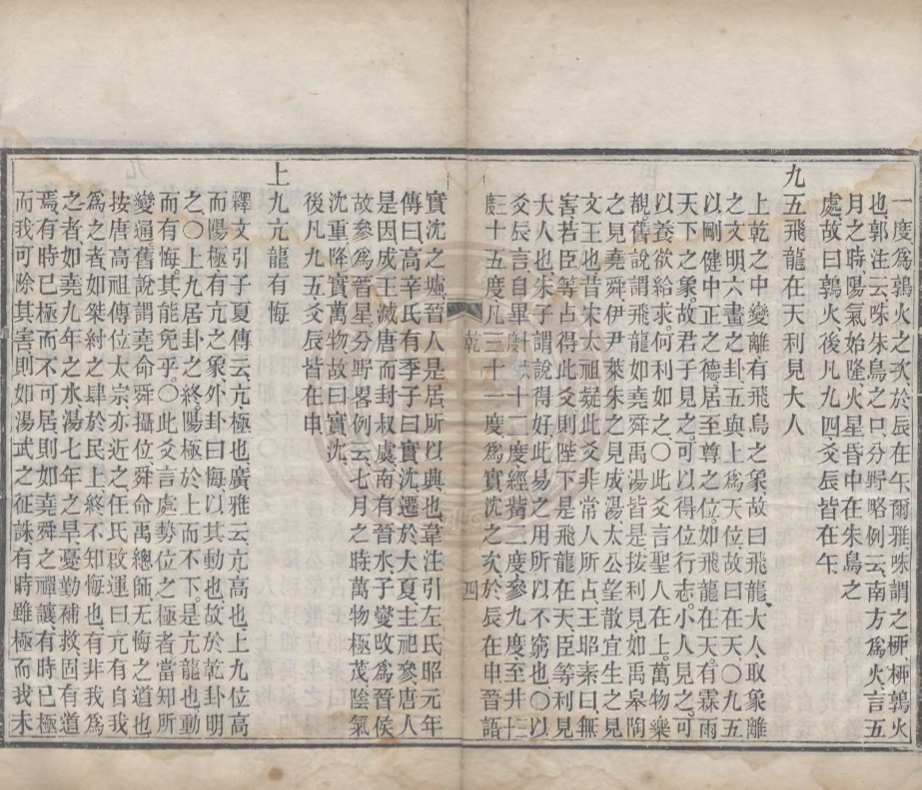 一度爲鶉火之次於辰在午爾雅咮謂之柳柳鶉火
也郭注云咮朱鳥之口分野略例云南方爲火言五
月之時陽氣始隆火星昏中在朱鳥之
處故曰鶉火後凡九四爻辰皆在午
九五飛龍在天利見大人
上乾之中變離有飛鳥之象故曰飛龍大人取象離
之文明六畫之卦五與上爲天位故曰在天〇九五
以剛健中正之德居至尊之位如飛龍在天有霖雨
天下之象故君子見之可以得位行志小人見之可
以養欲給求何利如之〇此爻言聖人在上萬物樂
覩舊說謂飛龍如堯舜禹湯利見如禹皋陶
之見堯舜伊尹萊朱之見成湯太公望散宜生之見
文王也昔宋太祖嘗占此爻非常人所占王昭素曰無
害若臣等占得此爻則陛下是飛龍在天臣等利見
大人也朱子謂說得好此易之用所以不窮也〇以
爻辰言自畢十二度經觜二度參九度至井十
度三十五度凡三十一度爲實沈之次於辰在申晉語
乾
四
實沈之墟晉人是居所以興也韋注引左氏昭元年
傳曰高辛氏有季子曰實沈遷於大夏主祀參唐人
是因成王滅唐而封叔虞南有晉水子燮改爲晉侯
故參爲晉星分野畧例云七月之時萬物極茂陰氣
沈重降實萬物故曰實沈
後凡九五爻辰皆在申
上九亢龍有悔
釋文引子夏傳云亢極也廣雅云亢高也上九位高
而陽極有亢之象外卦曰悔以其動也故於乾卦明
之〇上九居卦之終陽極於上而不下是亢龍也動
而有悔其能免乎〇此爻言處勢位之極者當知所
變通舊說謂堯命舜攝位舜命禹總師无悔之道也
按唐高祖傳位太宗亦近之任氏啟運曰亢有自我
爲之者如桀紂之肆於民上終不知悔也有非我爲
之者如堯九年之水湯七年之旱憂勤補救固有道
焉有時已極而不可居則如堯舜之禪讓有時已極
而我可除其害則如湯武之征誅有時雖極而我未